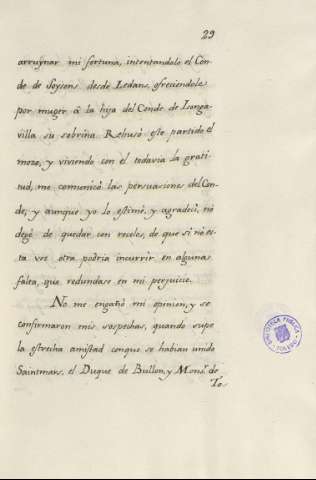 29
arruynar mi fortuna, intentandolo el Con-
de de Soysons desde Ledans, ofreciendole
por muger â la hija del Conde de Longa-
villa su sobrina. Rehusó este partido el
mozo, y viviendo con el todavia la grati-
tud, me comunicò las persuasiones del Con-
de; y aunque yo lo estimè, y agradecì, nó
degè de quedar con recelos, de que sí nó es-
ta vez otra podria incurrir en algunas
falta, que redundase en mi perjuicio.
No me engañó mi opinion, y se
confirmaron mis sospechas, quando supe
la estrecha amistad conque se habian unido
Saintmars, el Duque de Bullon, y Monsr. de
To.
BIBLIOTECA PUBLICA
TOLEDO